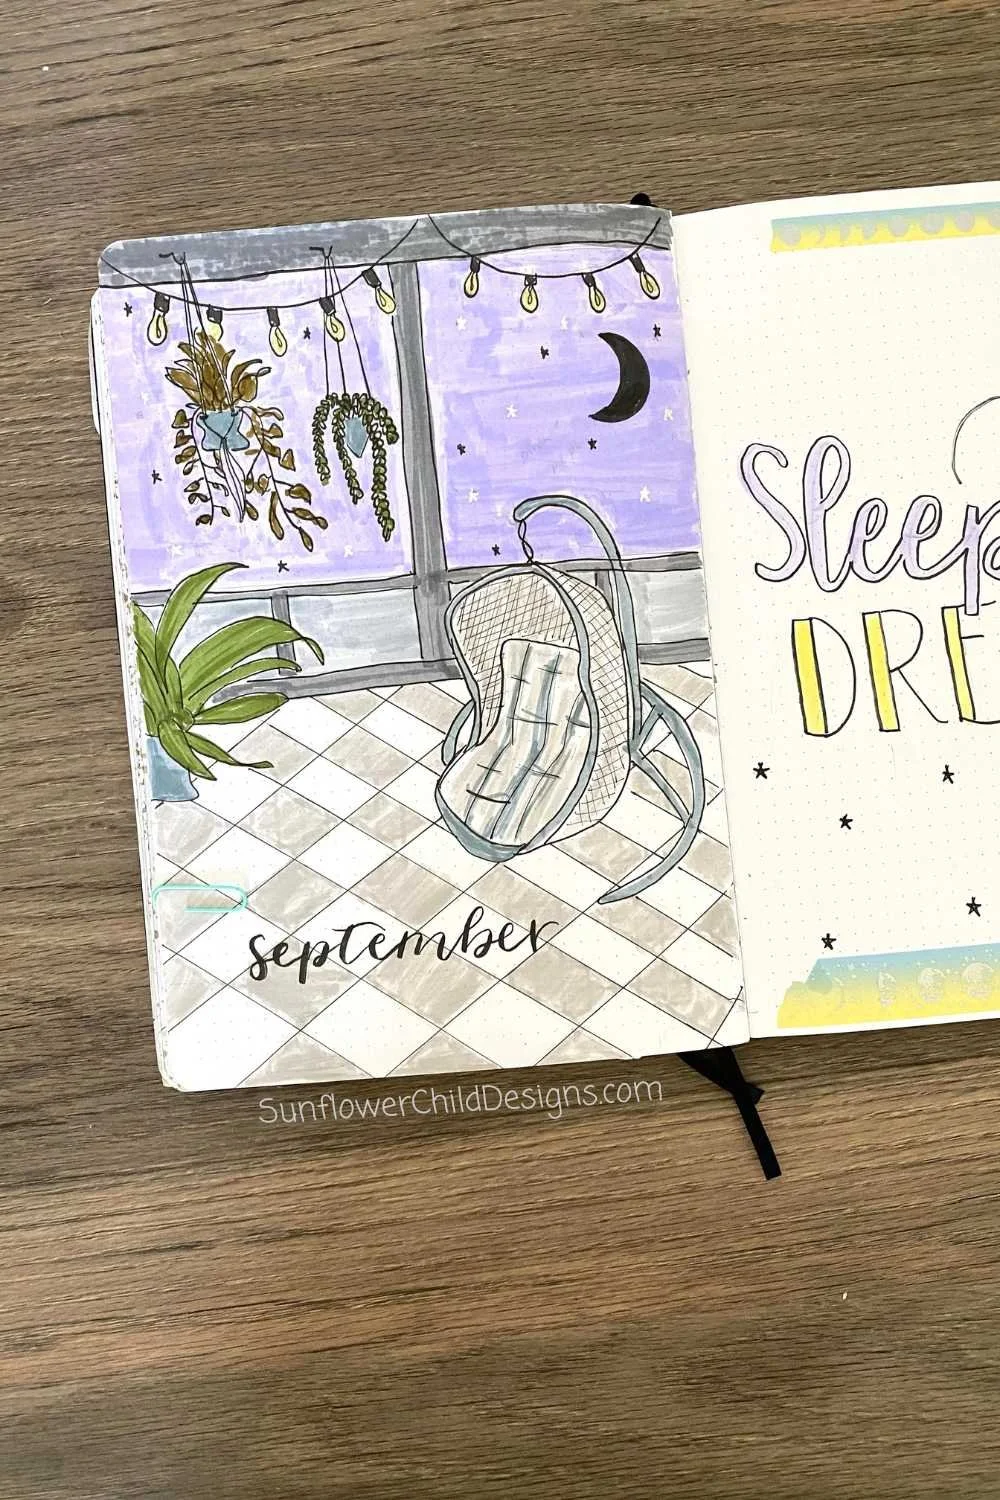 september
Sleep
DRE
SunflowerChildDesigns.com